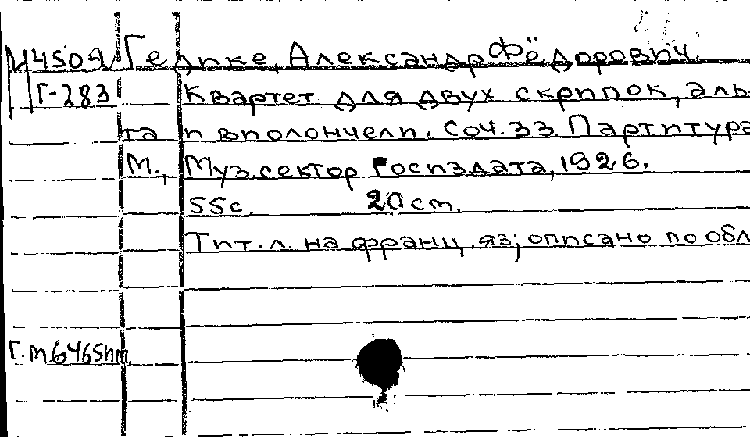 М4509 Гедике, Александр Фёдорович.
Г-283 Квартет для двух скрипок, аль
та и виолончели. Соч. 33 Партитура
М., Муз.сектор Госиздата, 1926.
55с. 20 cm.
Тит.л. на франц. яз; описано по обл
Г.м6465нт